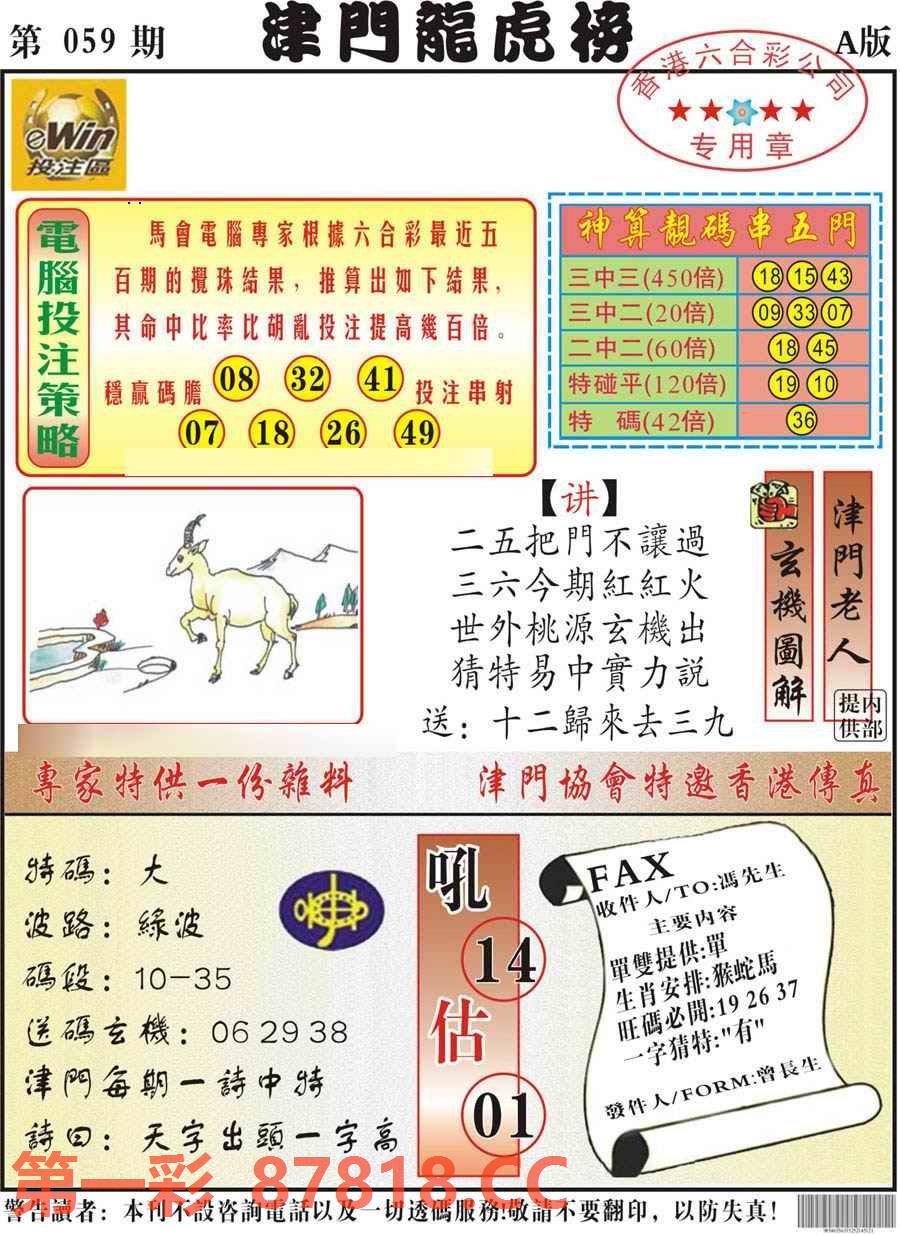 第 059 期
津門龍虎榜
A版
香港六合彩公司
专用章
eWin
投注區
電腦投注策略
馬會電腦專家根據六合彩最近五
百期的攪珠結果，推算出如下結果，
其命中比率比胡亂投注提高幾百倍。
穩贏碼膽 08 32 41 投注串射
07 18 26 49
神算靚碼串五門
三中三(450倍) 18 15 43
三中二(20倍) 09 33 07
二中二(60倍) 18 45
特碰平(120倍) 19 10
特 碼(42倍) 36
【讲】
二五把門不讓過
三六今期紅紅火
世外桃源玄機出
猜特易中實力説
送：十二歸來去三九
玄機圖解
津門老人
内部提供
專家特供一份雜料
津門協會特邀香港傳真
特碼：大
波路：綠波
碼段：10-35
送碼玄機：06 29 38
津門每期一詩中特
詩曰：天字出頭一字高
吼
14
估
01
FAX
收件人/TO:馮先生
主要内容
單雙提供:單
生肖安排:猴蛇馬
旺碼必開:19 26 37
一字猜特:"有"
發件人/FORM:曾長生
第一彩 87818.CC
警告讀者：本刊不設咨詢電話以及一切透碼服務!敬請不要翻印，以防失真!